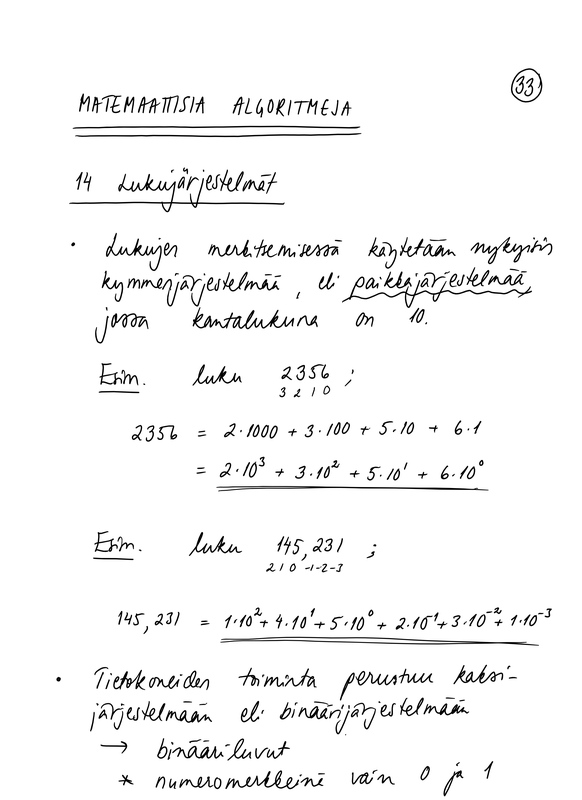 33
MATEMAATTISIA ALGORITMEJA
14 Lukujärjestelmät
• Lukujen merkitsemisessä käytetään nykyisin
kymmenjärjestelmää, eli paikkajärjestelmää,
jossa kantalukuna on 10.
Esim. luku 2356 ;
3 2 1 0
2356 = 2·1000 + 3·100 + 5·10 + 6·1
= 2·10³ + 3·10² + 5·10¹ + 6·10⁰
Esim. luku 145,231 ;
2 1 0 -1 -2 -3
145,231 = 1·10² + 4·10¹ + 5·10⁰ + 2·10⁻¹ + 3·10⁻² + 1·10⁻³
• Tietokoneiden toiminta perustuu kaksi-
järjestelmään eli binäärijärjestelmään
→ binääriluvut
* numeromerkkeinä vain 0 ja 1